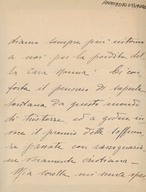 diamo sempre più intorno
a noi per la perdita del
la cara Nonna! Ci con
forta il pensiero di saperla
lontana da questo mondo
di tristezze ed a godere in
vece il premio delle sofferen
ze passate con rassegnazio
ne veramente cristiana —
Mia sorella mi